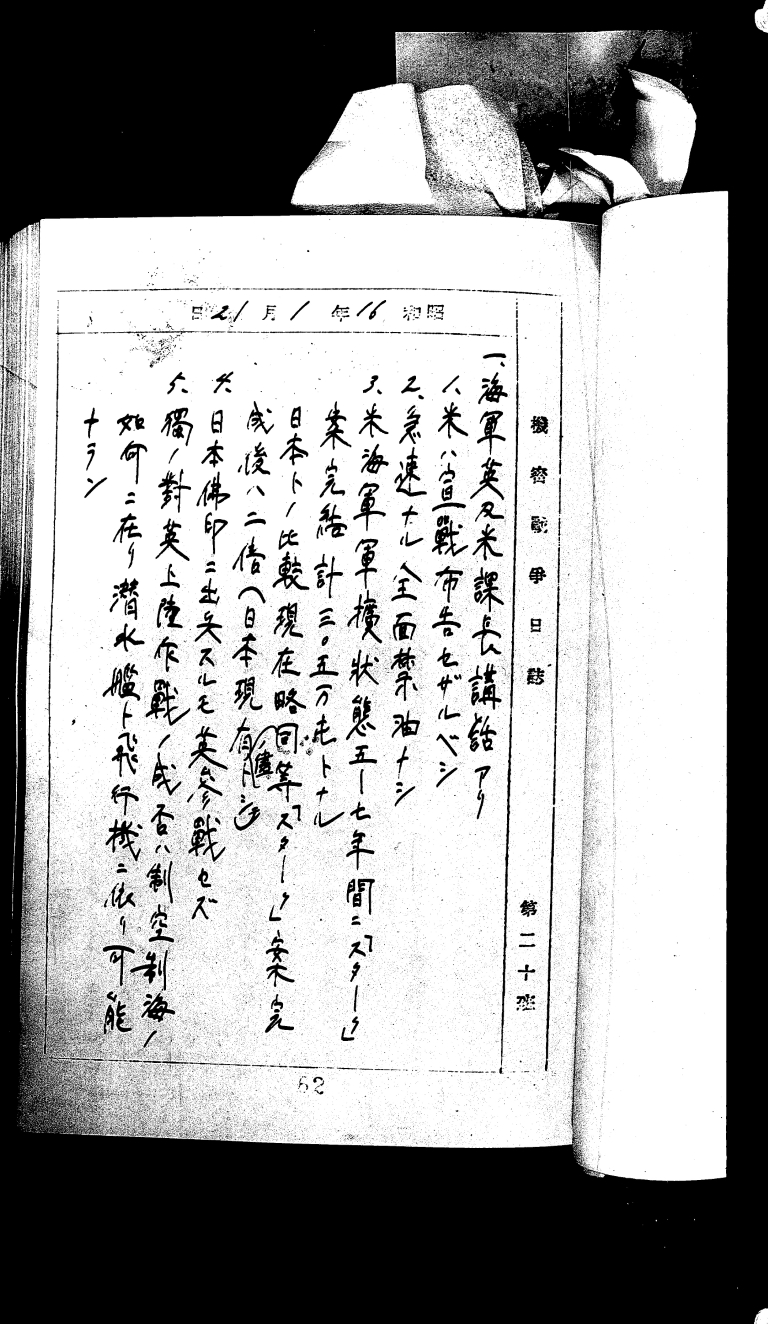 機密戰爭日誌
第二十班
昭和16年1月21日
一、海軍英及米課長講話アリ
1、米ハ宣戰布告セザルベシ
2、急速ナル全面禁油ナシ
3、米海軍軍擴狀態五ー七年間ニ「スターク」
案完結 計三〇五万屯トナル
日本トノ比較現在略同等「スターク」案完
成後ハ二倍(日本現有ノ儘トシテ)
4、日本佛印ニ出兵スルモ英參戰セズ
5、獨ノ對英上陸作戰ノ成否ハ制空制海ノ
如何ニ在リ潜水艦ト飛行機ニ依リ可能
ナラン
62